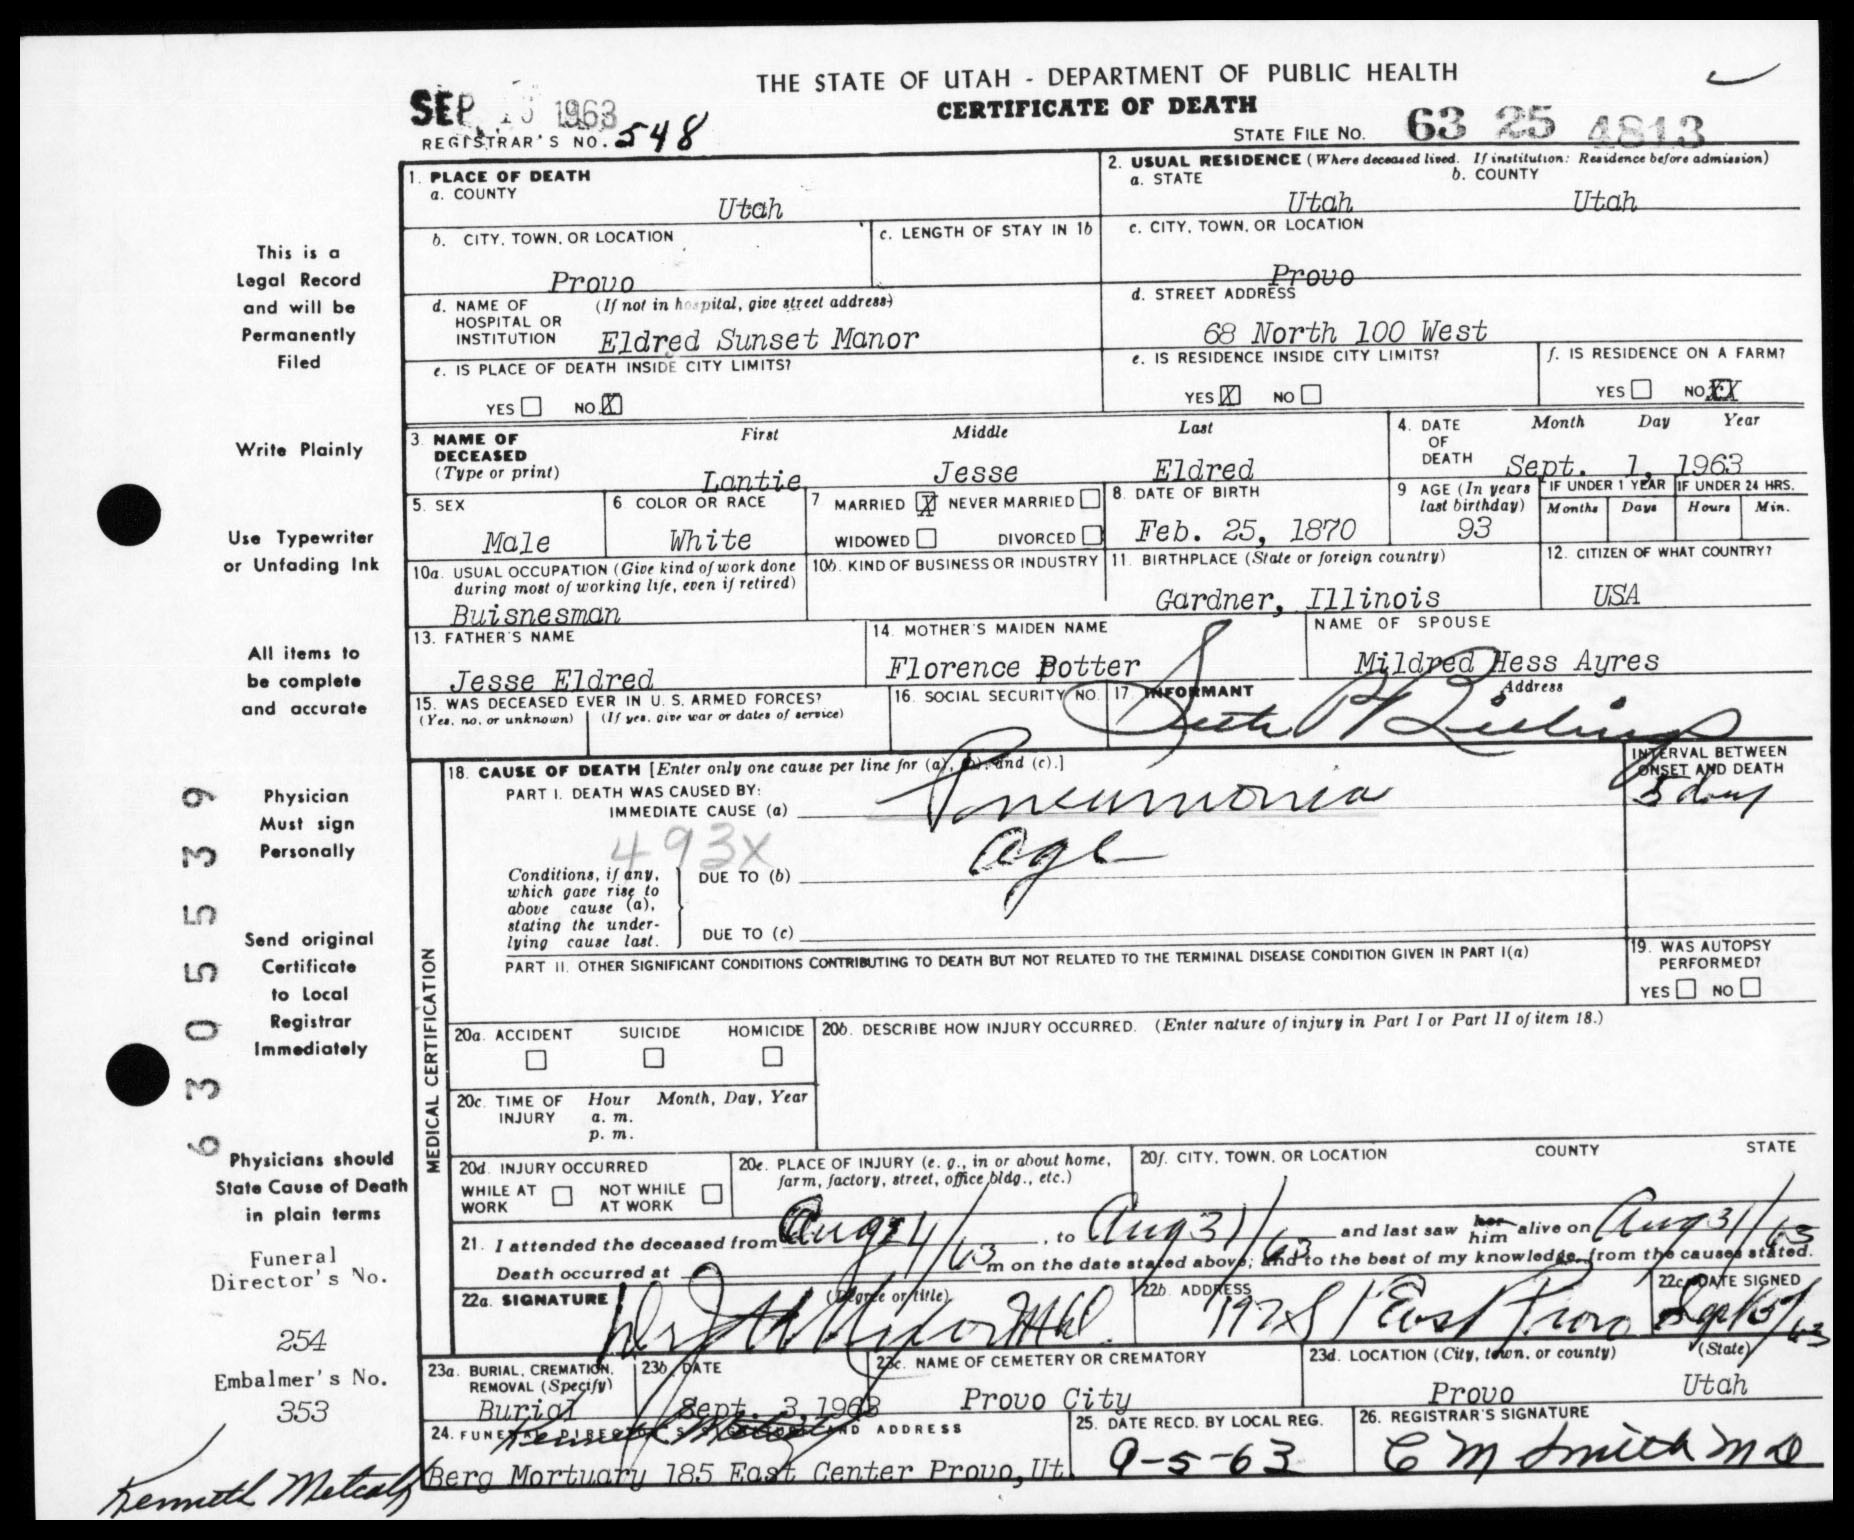 THE STATE OF UTAH - DEPARTMENT OF PUBLIC HEALTH
CERTIFICATE OF DEATH
SEP 1963
REGISTRAR'S NO. 548
STATE FILE NO. 63 25 4813
1. PLACE OF DEATH
a. COUNTY
Utah
2. USUAL RESIDENCE (Where deceased lived. If institution: Residence before admission)
a. STATE
Utah
b. COUNTY
Utah
b. CITY, TOWN, OR LOCATION
Provo
c. LENGTH OF STAY IN 1b
c. CITY, TOWN, OR LOCATION
Provo
d. NAME OF HOSPITAL OR INSTITUTION
(If not in hospital, give street address)
Eldred Sunset Manor
d. STREET ADDRESS
68 North 100 West
e. IS PLACE OF DEATH INSIDE CITY LIMITS?
YES NO X
e. IS RESIDENCE INSIDE CITY LIMITS?
YES X NO
f. IS RESIDENCE ON A FARM?
YES NO XX
3. NAME OF DECEASED
(Type or print)
First Middle Last
Lantie Jesse Eldred
4. DATE OF DEATH
Month Day Year
Sept. 1, 1963
5. SEX
Male
6 COLOR OR RACE
White
7 MARRIED X NEVER MARRIED
WIDOWED DIVORCED
8. DATE OF BIRTH
Feb. 25, 1870
9 AGE (In years last birthday)
93
IF UNDER 1 YEAR
Months Days
IF UNDER 24 HRS.
Hours Min.
10a. USUAL OCCUPATION (Give kind of work done during most of working life, even if retired)
Buisnesman
10b. KIND OF BUSINESS OR INDUSTRY
11. BIRTHPLACE (State or foreign country)
Gardner, Illinois
12. CITIZEN OF WHAT COUNTRY?
USA
13. FATHER'S NAME
Jesse Eldred
14. MOTHER'S MAIDEN NAME
Florence Potter
NAME OF SPOUSE
Mildred Hess Ayres
15. WAS DECEASED EVER IN U. S. ARMED FORCES?
(Yes, no, or unknown) (If yes, give war or dates of service)
16. SOCIAL SECURITY NO.
17. INFORMANT
Address
18. CAUSE OF DEATH [Enter only one cause per line for (a), (b), and (c).]
PART I. DEATH WAS CAUSED BY:
IMMEDIATE CAUSE (a) Pneumonia
INTERVAL BETWEEN ONSET AND DEATH
5 days
493X
Conditions, if any, which gave rise to above cause (a), stating the underlying cause last.
DUE TO (b) age
DUE TO (c)
PART II. OTHER SIGNIFICANT CONDITIONS CONTRIBUTING TO DEATH BUT NOT RELATED TO THE TERMINAL DISEASE CONDITION GIVEN IN PART I(a)
19. WAS AUTOPSY PERFORMED?
YES NO
MEDICAL CERTIFICATION
20a. ACCIDENT SUICIDE HOMICIDE
20b. DESCRIBE HOW INJURY OCCURRED. (Enter nature of injury in Part I or Part II of item 18.)
20c. TIME OF INJURY
Hour Month, Day, Year
a. m.
p. m.
20d. INJURY OCCURRED
WHILE AT WORK NOT WHILE AT WORK
20e. PLACE OF INJURY (e. g., in or about home, farm, factory, street, office bldg., etc.)
20f. CITY, TOWN, OR LOCATION COUNTY STATE
21. I attended the deceased from Aug 24/63, to Aug 31/63 and last saw her him alive on Aug 31/63
Death occurred at m on the date stated above; and to the best of my knowledge, from the causes stated.
22a. SIGNATURE (Degree or title)
22b. ADDRESS
22c. DATE SIGNED
23a. BURIAL, CREMATION, REMOVAL (Specify)
Burial
23b. DATE
Sept. 3, 1963
23c. NAME OF CEMETERY OR CREMATORY
Provo City
23d. LOCATION (City, town, or county) (State)
Provo Utah
24. FUNERAL DIRECTOR'S SIGNATURE AND ADDRESS
Kenneth Metcalf
Berg Mortuary 185 East Center Provo, Ut.
25. DATE RECD. BY LOCAL REG.
9-5-63
26. REGISTRAR'S SIGNATURE
C M Smith M D
This is a
Legal Record
and will be
Permanently
Filed
Write Plainly
Use Typewriter
or Unfading Ink
All items to
be complete
and accurate
Physician
Must sign
Personally
Send original
Certificate
to Local
Registrar
Immediately
Physicians should
State Cause of Death
in plain terms
Funeral
Director's No.
254
Embalmer's No.
353
Kenneth Metcalf
63055539